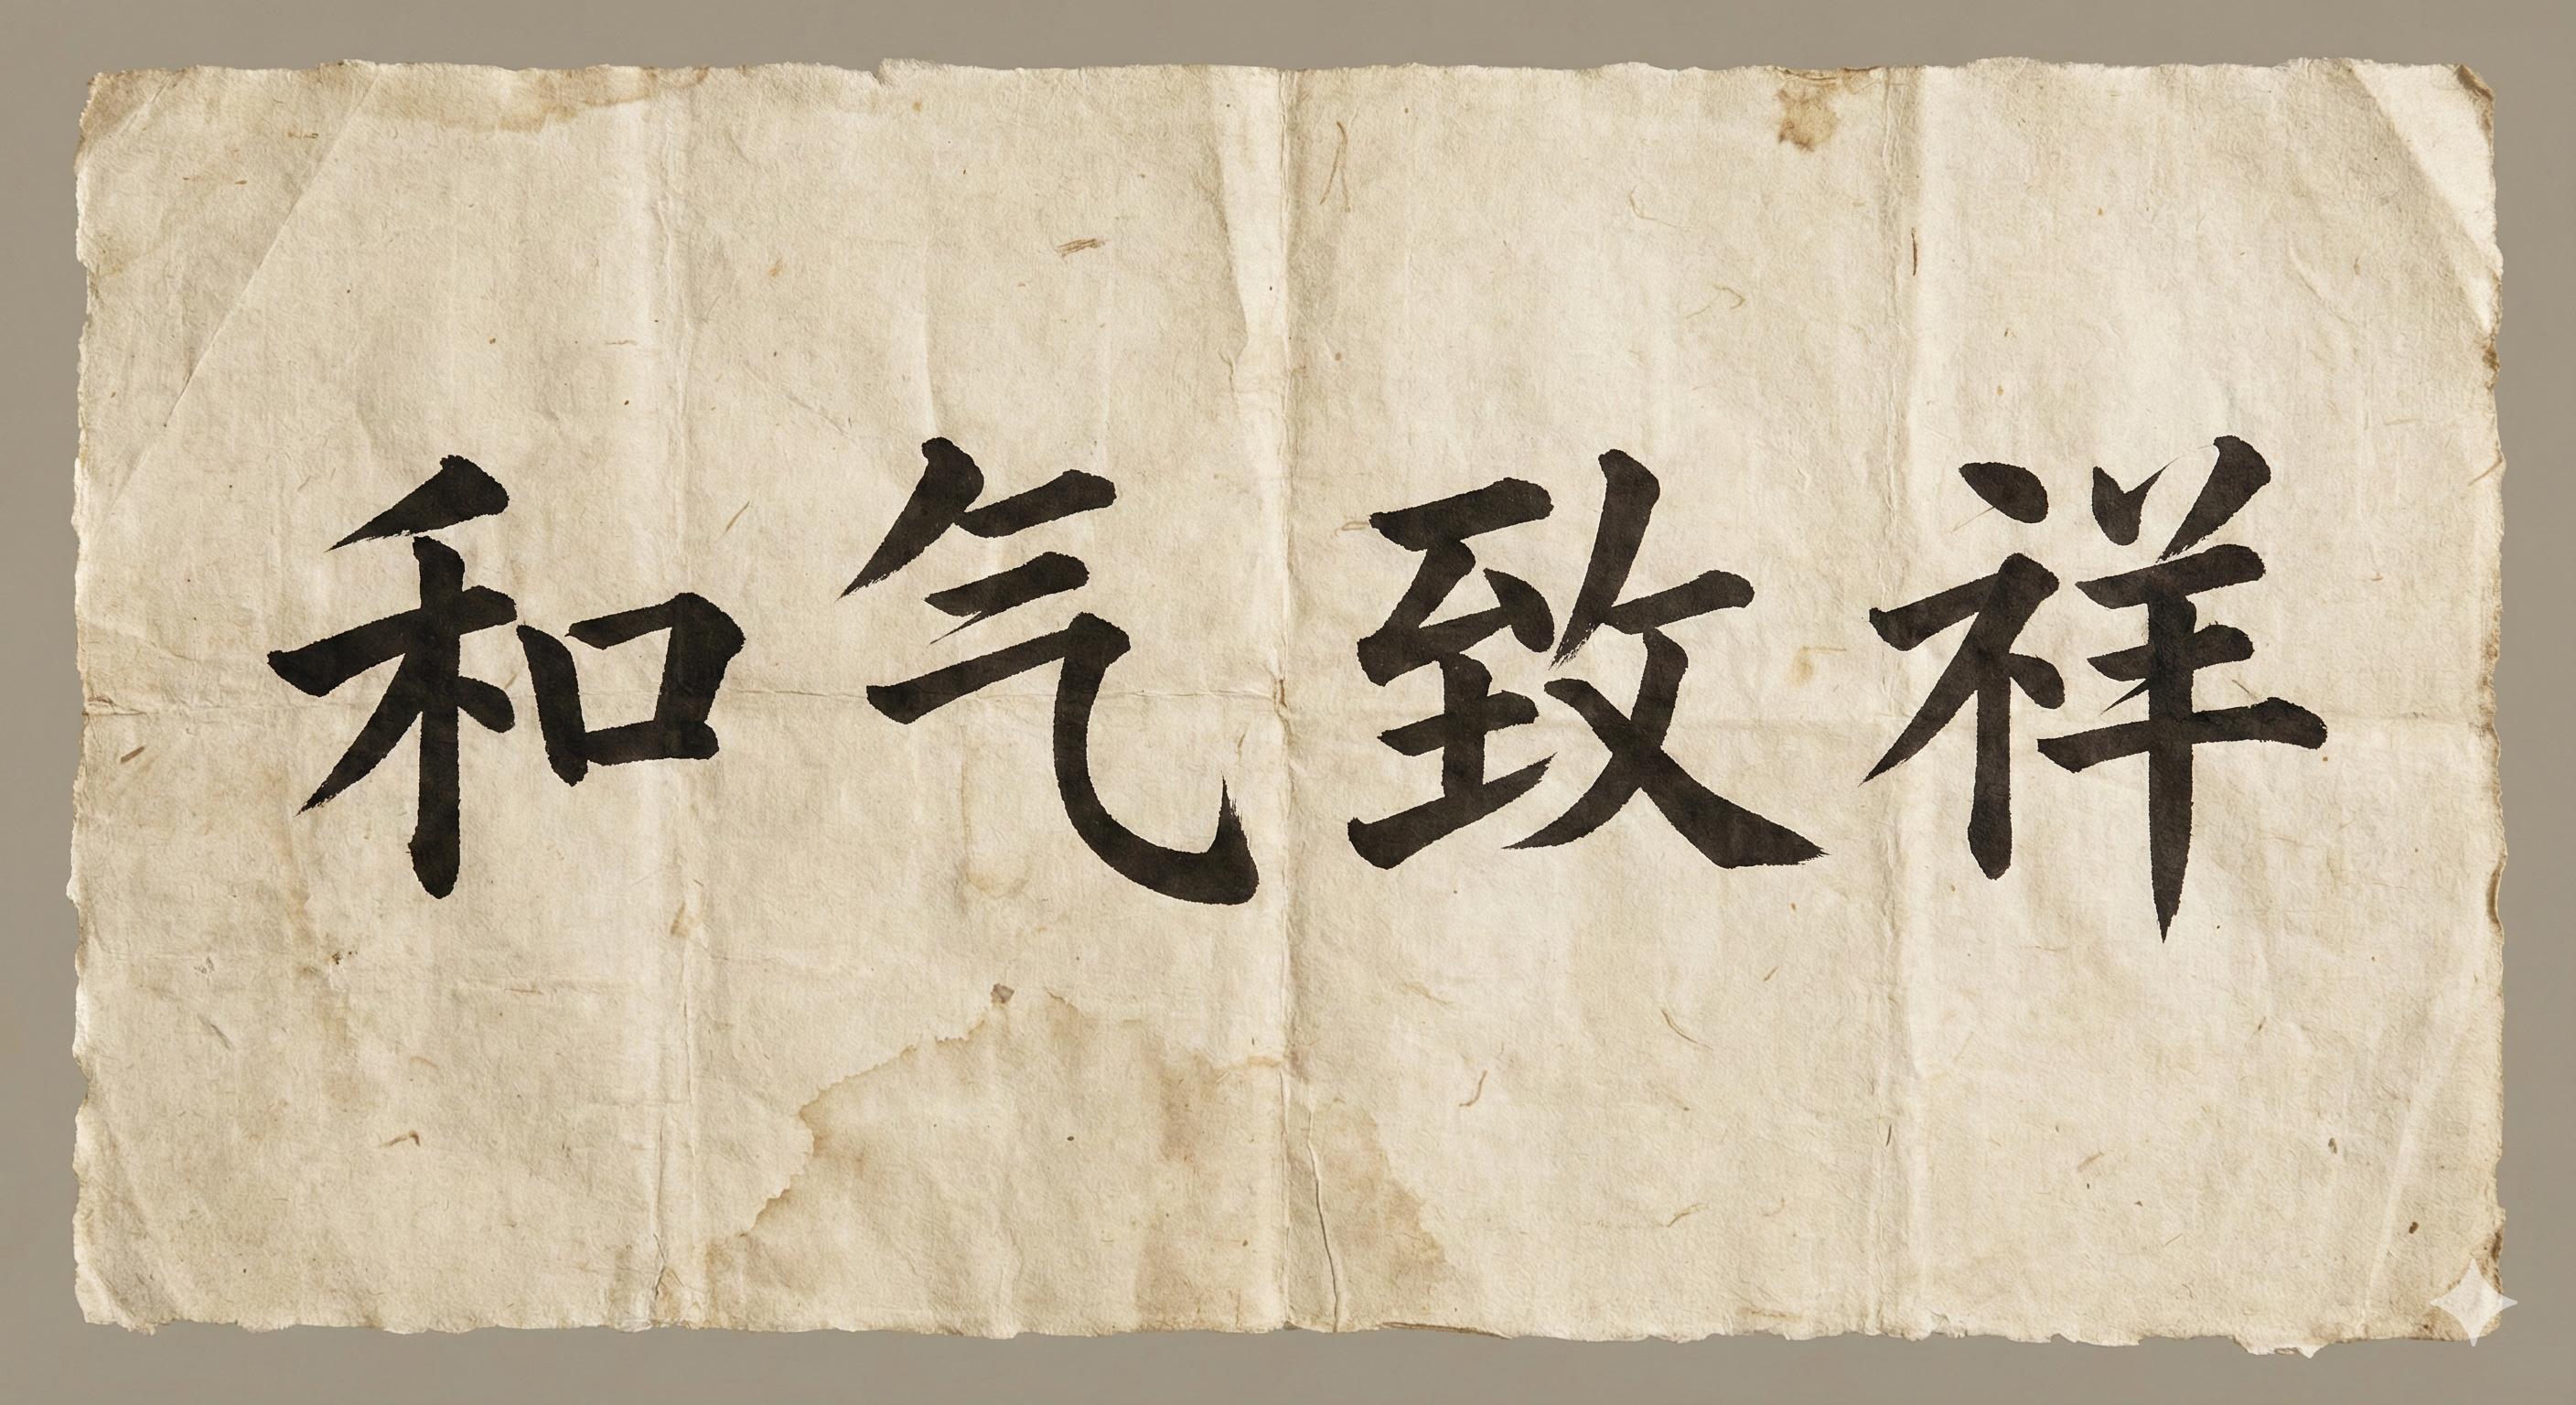 和气致祥